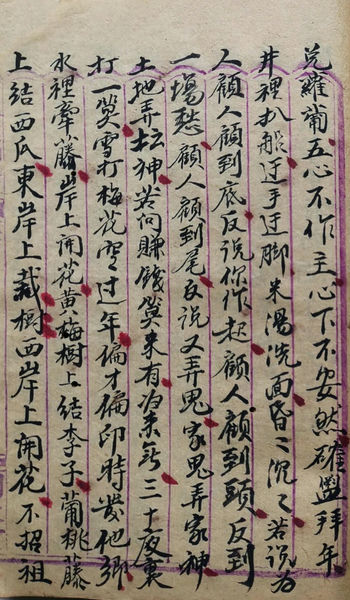 兑羅葡五心不作主心下不安然確盥拜年
井裡扒船迂手迂脚米湯洗面昏〻沉〻若说为
人顧人顧到底反说你作起顧人顧到頭反到
一場愁顧人顧到尾反说又弄鬼家鬼弄家神
土地弄坛神若问賺錢莫来有没来於三十夜裏
打一覽雪打梅花空〻过年偏才偏印時發他鄉
水裡牽藤岸上開花黄梅樹上結李子葡桃藤
上結西瓜東岸上裁樹西岸上開花不招祖